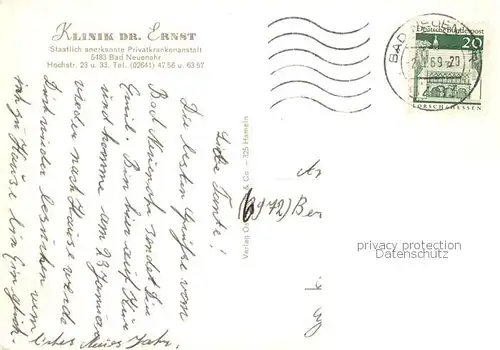 KLINIK DR. ERNST
Staatlich anerkannte Privatkrankenanstalt
5483 Bad Neuenahr
Hochstr. 23 u. 33. Tel. (02641) 4756 u. 6357
Deutsche Bundespost
20
LORSCH/HESSEN
BAD NEUENAHR
69-20
Liebe Tante!
Die besten Grüße vom
Bad Neuenahr sendet Dir
Emil. Bin hier auf Kur
und komme am 23 Januar
wieder nach Hause werde
Dich wieder besuchen wenn
ich zu Hause bin Ein glück-
liches Neues Jahr,
Verlag - 325 Hameln
An
(6972) Ber
privacy protection
Datenschutz